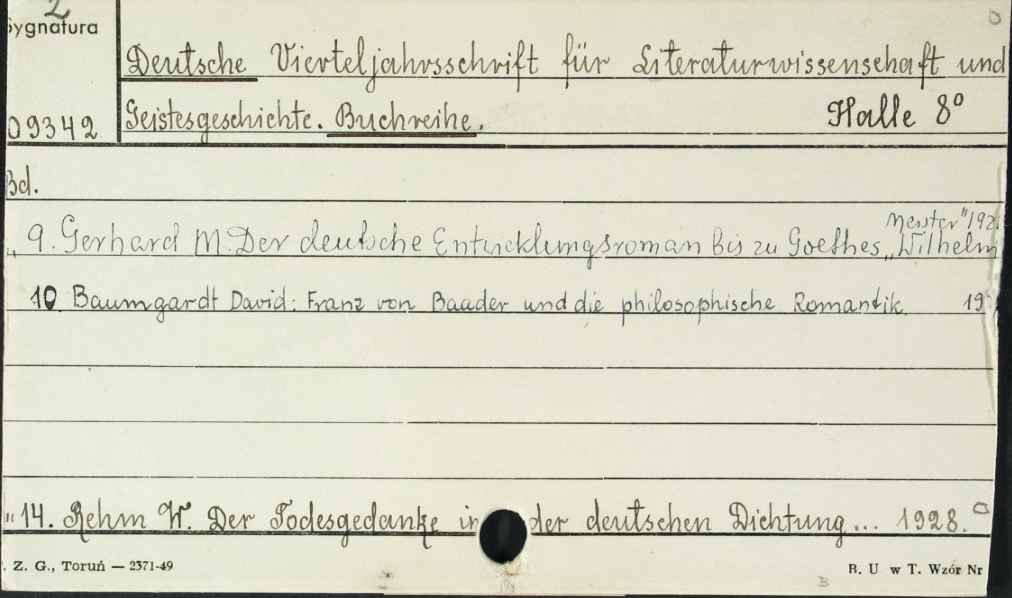 2
Sygnatura
Deutsche Vierteljahrsschrift für Literaturwissenschaft und
09342 Geistesgeschichte. Buchreihe. Halle 8°
Bd.
Meister" 192
„ 9. Gerhard M. Der deutsche Entwicklungsroman bis zu Goethes „Wilhelm
10. Baumgardt David: Franz von Baader und die philosophische Romantik. 19
" 14. Rehm W. Der Todesgedanke in der deutschen Dichtung... 1928.
. Z. G., Toruń — 2371-49 B. U w T. Wzór Nr